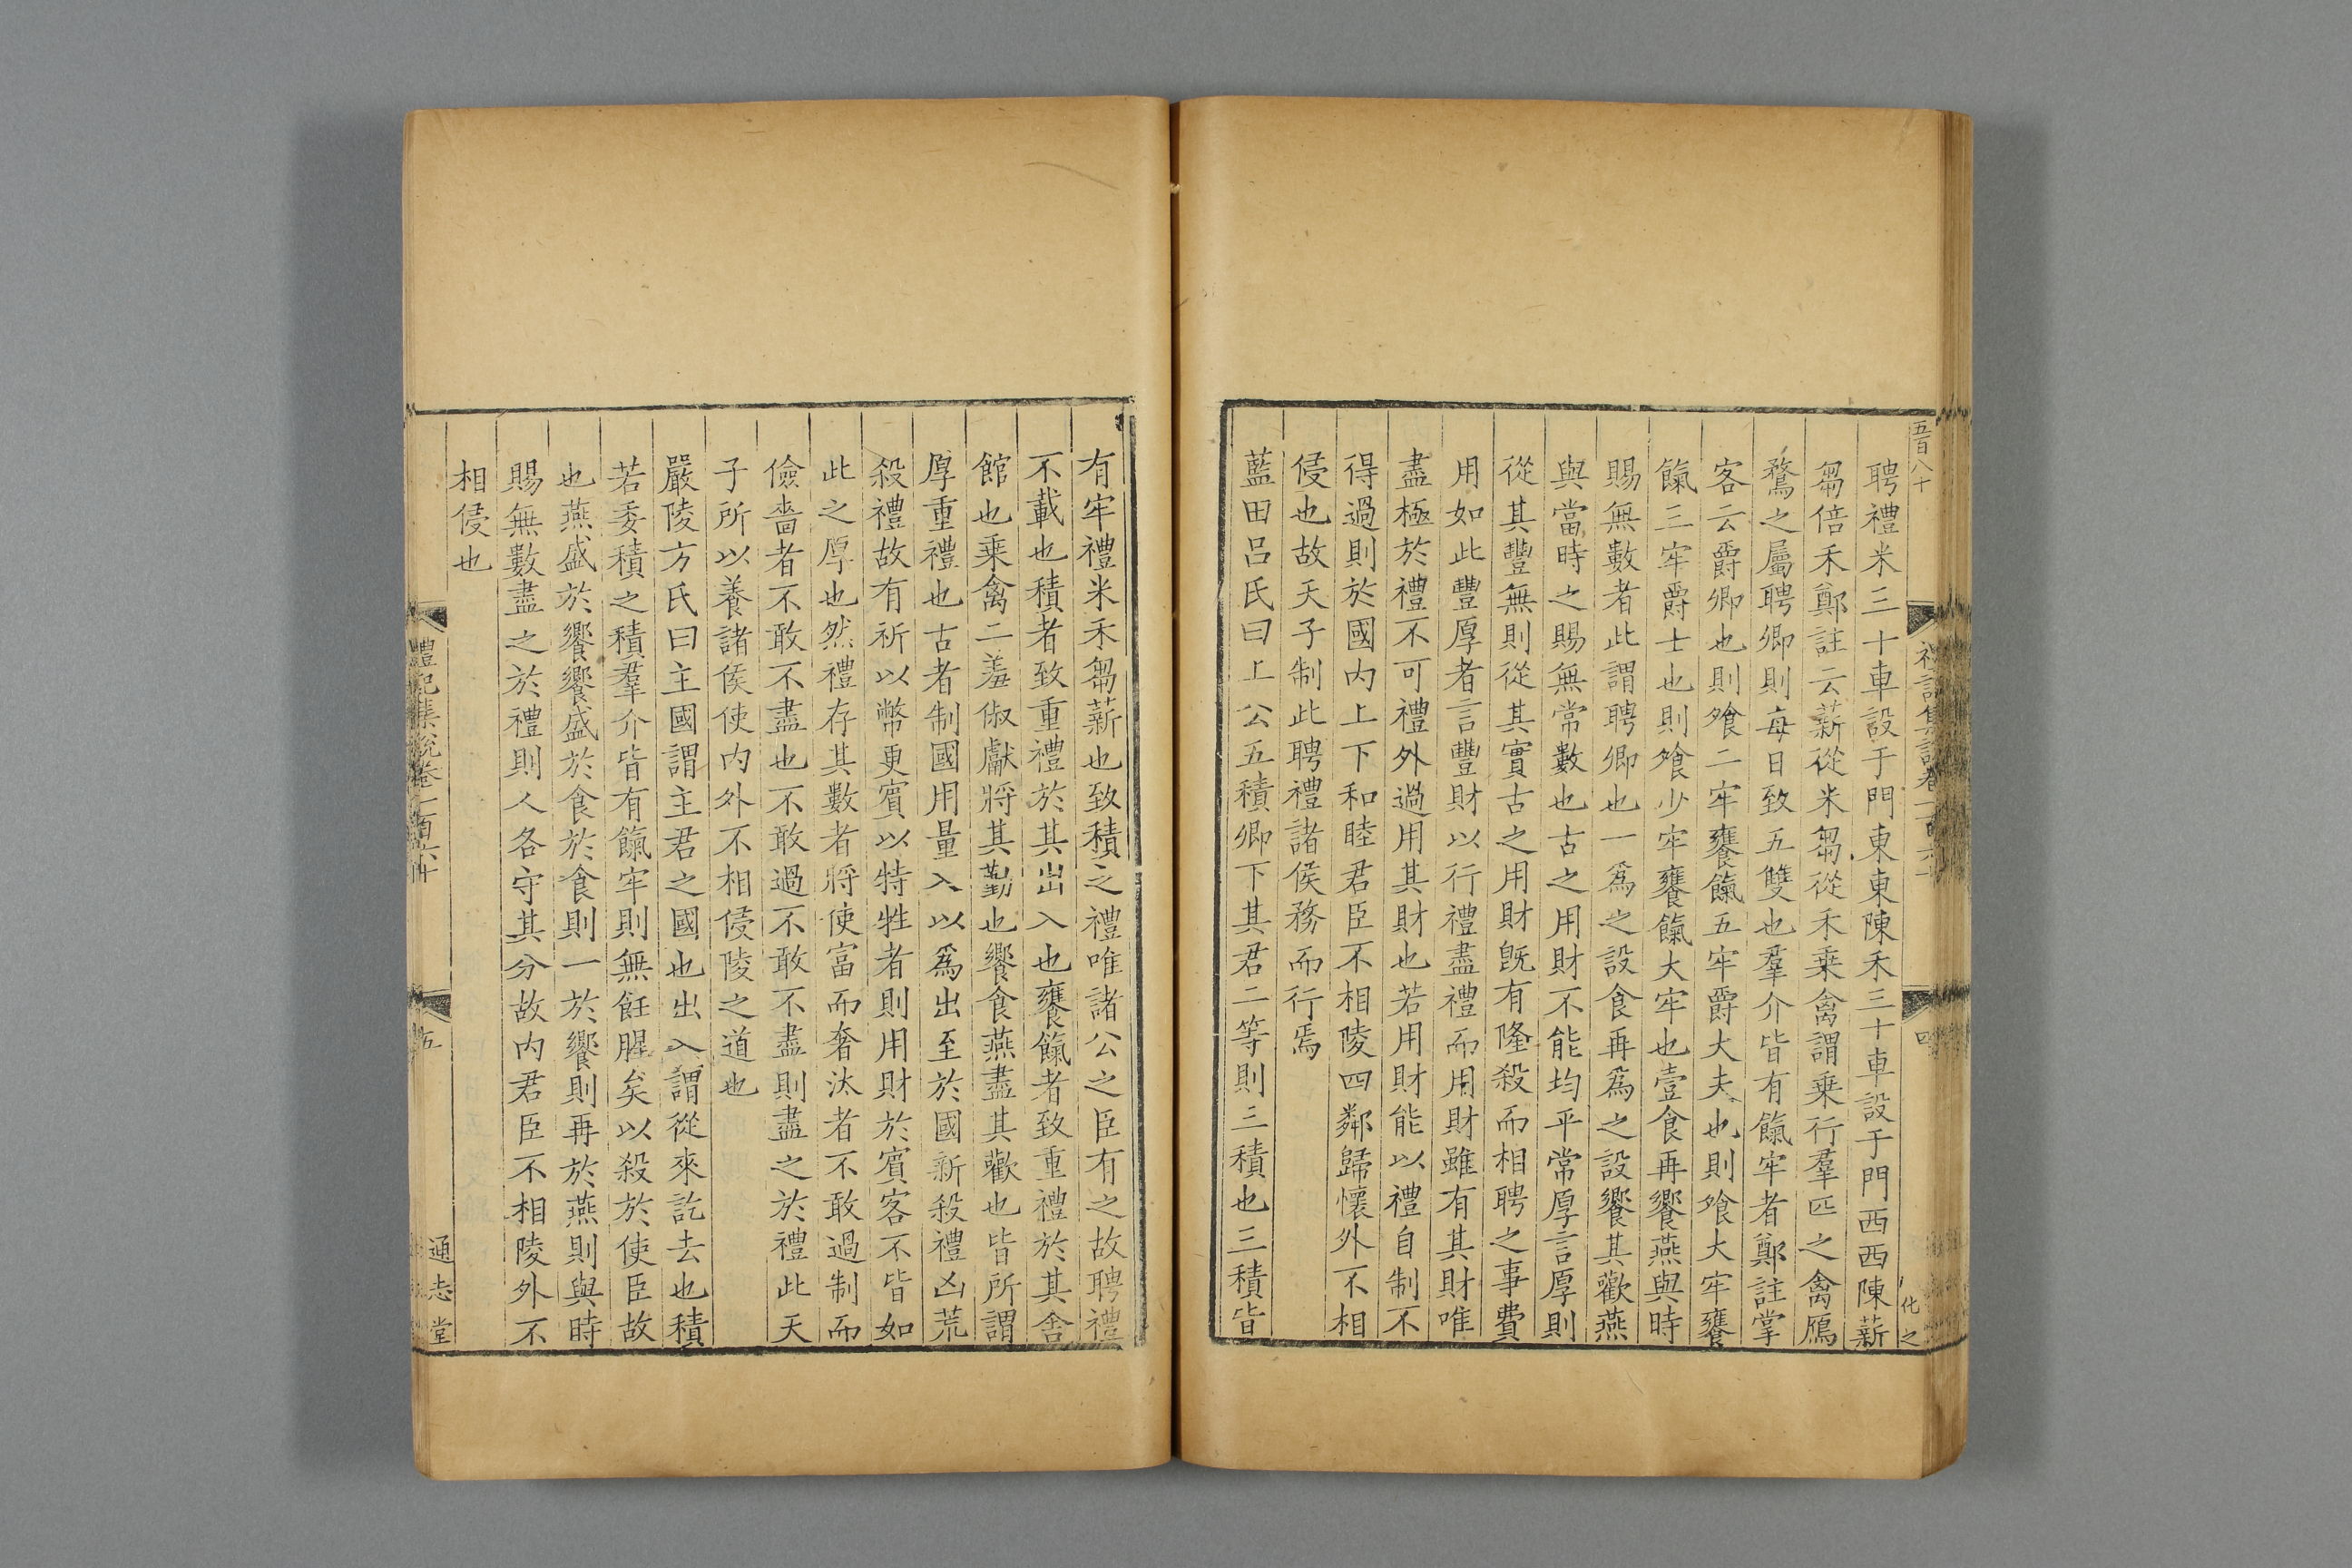 五百八十
聘禮米三十車設于門東東陳禾三十車設于門西西陳薪
芻倍禾鄭註云薪從米芻從禾乗禽謂乗行羣匹之禽鴈
鶩之屬聘卿則每日致五雙也羣介皆有餼牢者鄭註掌
客云爵卿也則飧二牢饔餼五牢爵大夫也則飧大牢饔
餼三牢爵士也則飧少牢饔餼大牢也壹食再饗燕與時
賜無數者此謂聘卿也一爲之設食再爲之設饗其歡燕
與當時之賜無常數也古之用財不能均平常厚言厚則
從其豐無則從其實古之用財旣有隆殺而相聘之事費
用如此豐厚者言豐財以行禮盡禮而用財雖有其財唯
盡極於禮不可禮外過用其財也若用財能以禮自制不
得過則於國内上下和睦君臣不相陵四鄰歸懷外不相
侵也故天子制此聘禮諸侯務而行焉
藍田呂氏曰上公五積卿下其君二等則三積也三積皆
四
化之
有牢禮米禾芻薪也致積之禮唯諸公之臣有之故聘禮
不載也積者致重禮於其出入也饔餼者致重禮於其舍
館也乗禽二羞俶獻將其勤也饗食燕盡其歡也皆所謂
厚重禮也古者制國用量入以爲出至於國新殺禮凶荒
殺禮故有祈以幣更賓以特牲者則用財於賓客不皆如
此之厚也然禮存其數者將使富而奢汰者不敢過制而
儉嗇者不敢不盡也不敢過不敢不盡則盡之於禮此天
子所以養諸侯使内外不相侵陵之道也
嚴陵方氏曰主國謂主君之國也出入謂從來訖去也積
若委積之積羣介皆有餼牢則無飪腥矣以殺於使臣故
也燕盛於饗饗盛於食於食則一於饗則再於燕則與時
賜無數盡之於禮則人各守其分故内君臣不相陵外不
相侵也
禮記集說卷一百六十
五
通志堂